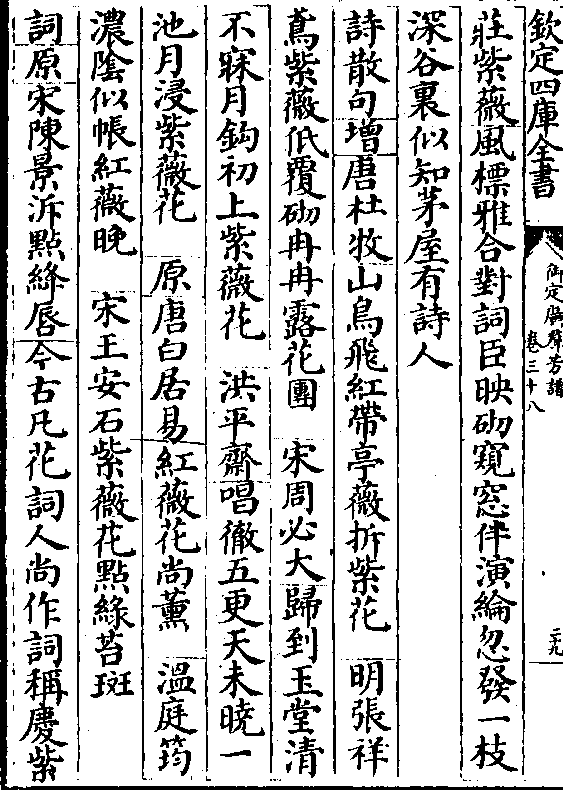 欽定四庫全書
御定廣群芳譜
卷三十八
二十九
莊紫薇風標雅合對詞臣映砌窺窓伴演綸忽發一枝
深谷裏似知茅屋有詩人
詩散句增唐杜牧山鳥飛紅帶亭薇折紫花　明張祥
鳶紫薇低覆砌冉冉露花團　宋周必大歸到玉堂清
不寐月鈎初上紫薇花　洪平齋唱徹五更天未曉一
池月浸紫薇花　原唐白居易紅薇花尚薰　溫庭筠
濃陰似帳紅薇晚　宋王安石紫薇花點綠苔斑
詞原宋陳景沂點絳唇今古凡花詞人尚作詞稱慶紫